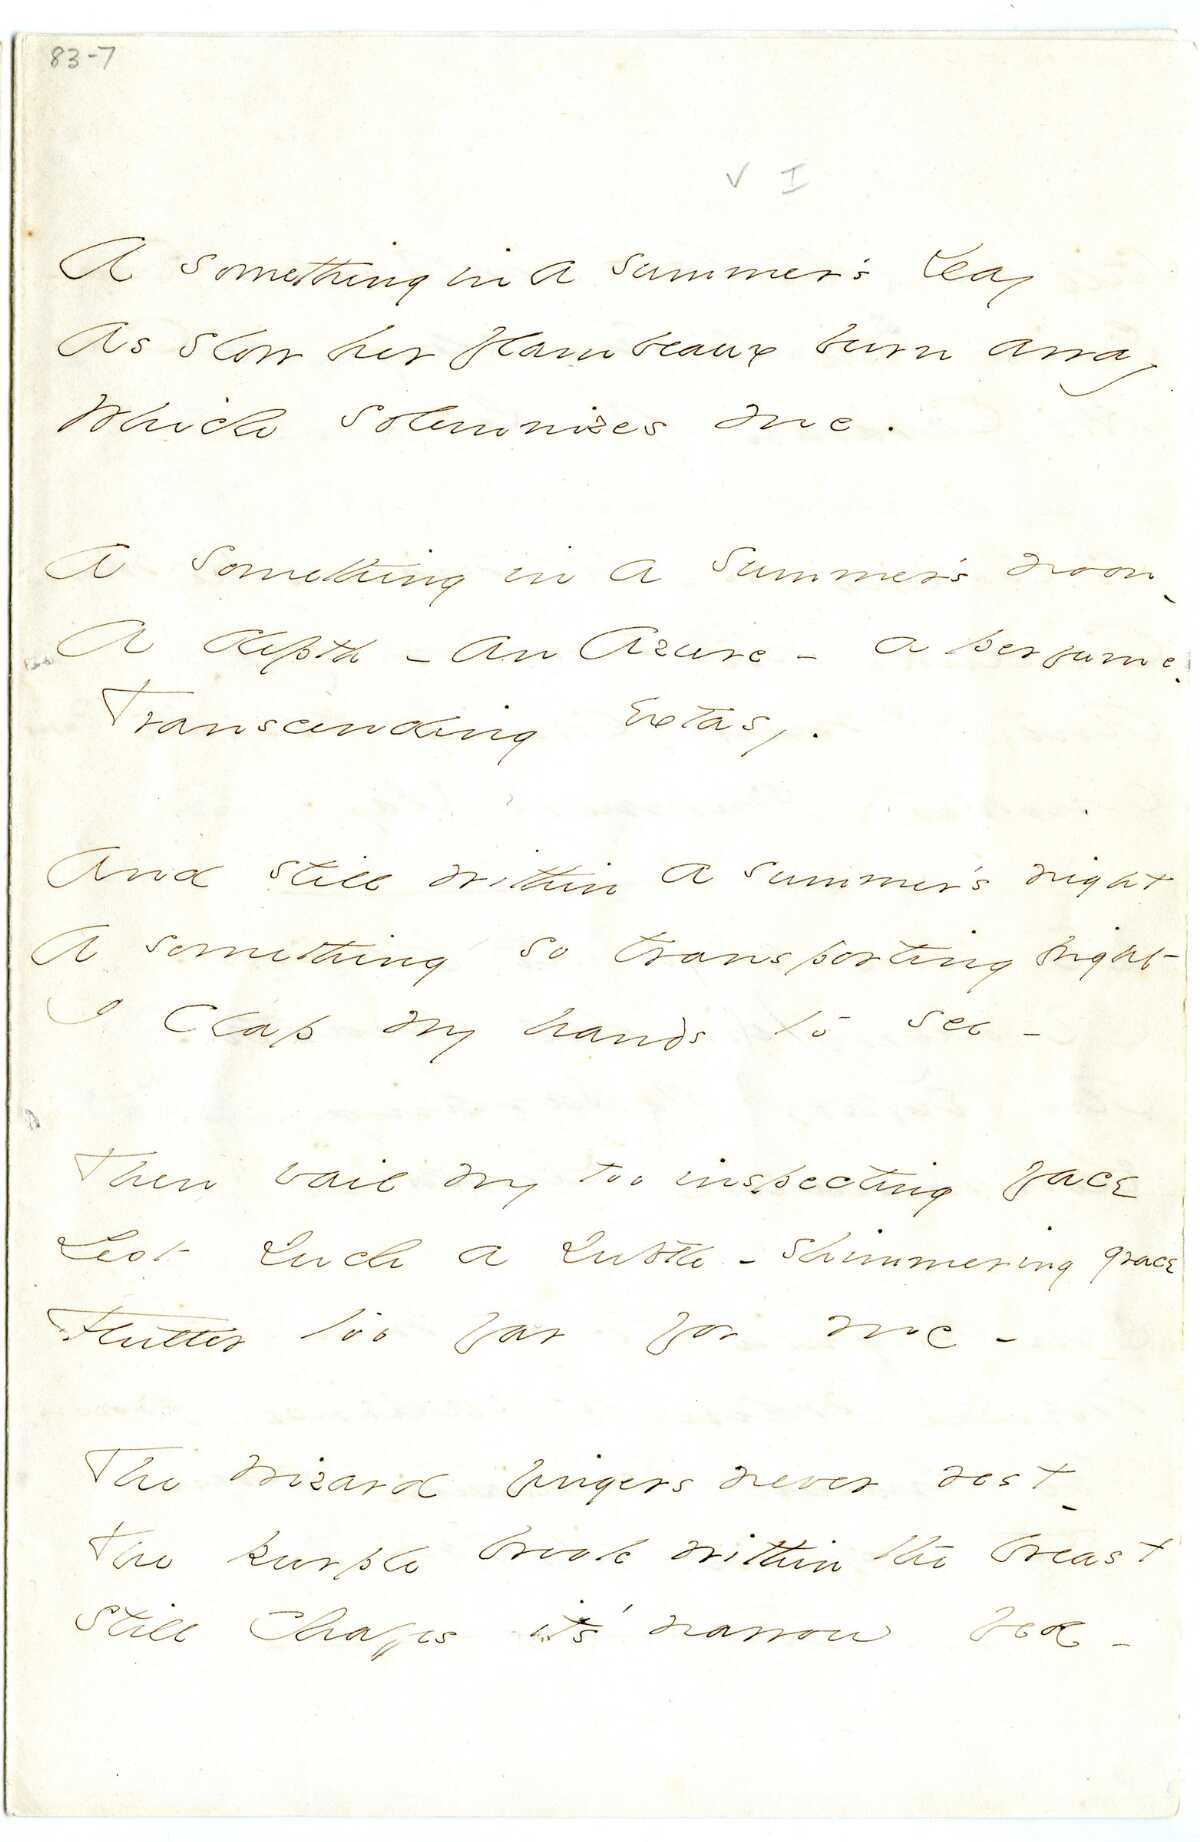 83-7
V I
A something in a summer's Day
As slow her flambeaux burn away
Which solemnizes me.
A something in a summer's noon -
A depth - an Azure - a perfume -
Transcending Extasy.
And still within a summer's night
A something so transporting bright
I clap my hands to see -
Then vail my too inspecting face
Lest such a subtle - shimmering grace
Flutter too far for me -
The wizard fingers never rest -
The purple brook within the breast
Still chafes its' narrow bed -